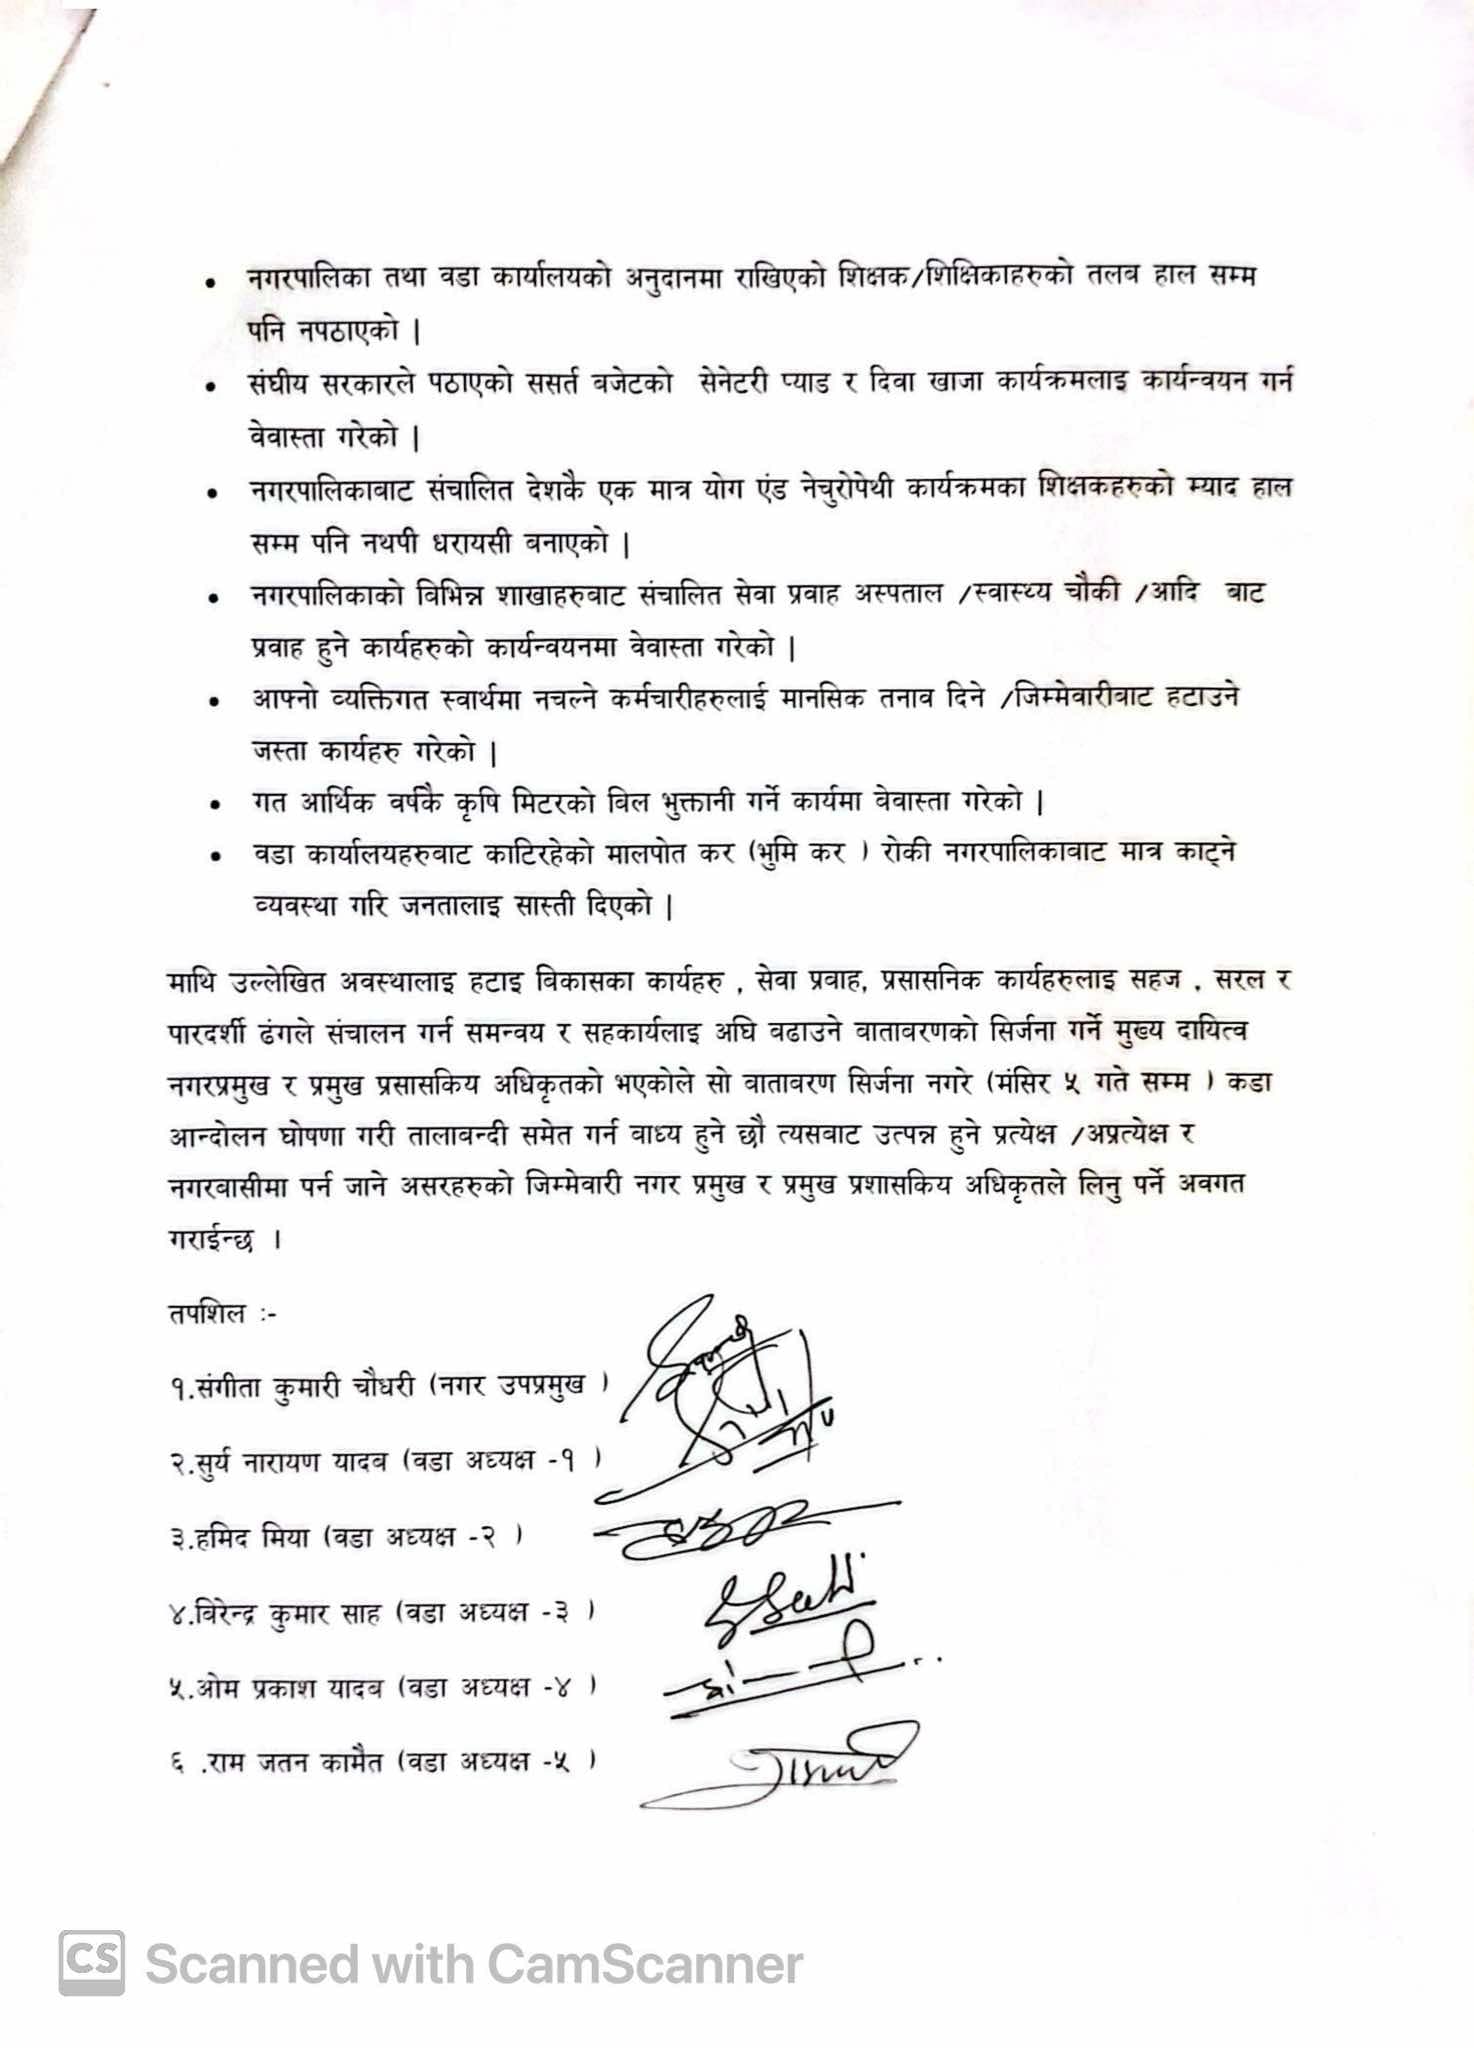 • नगरपालिका तथा वडा कार्यालयको अनुदानमा राखिएको शिक्षक/शिक्षिकाहरुको तलब हाल सम्म
पनि नपठाएको |
• संघीय सरकारले पठाएको ससर्त वजेटको सेनेटरी प्याड र दिवा खाजा कार्यक्रमलाइ कार्यन्वयन गर्न
वेवास्ता गरेको |
• नगरपालिकावाट संचालित देशकै एक मात्र योग एंड नेचुरोपेथी कार्यक्रमका शिक्षकहरुको म्याद हाल
सम्म पनि नथपी धरायसी वनाएको |
• नगरपालिकाको विभिन्न शाखाहरुवाट संचालित सेवा प्रवाह अस्पताल /स्वास्थ्य चौकी /आदि वाट
प्रवाह हुने कार्यहरुको कार्यन्वयनमा वेवास्ता गरेको |
• आफ्नो व्यक्तिगत स्वार्थमा नचल्ने कर्मचारीहरुलाई मानसिक तनाव दिने /जिम्मेवारीवाट हटाउने
जस्ता कार्यहरु गरेको |
• गत आर्थिक वर्षकै कृषि मिटरको विल भुक्तानी गर्ने कार्यमा वेवास्ता गरेको |
• वडा कार्यालयहरुवाट काटिरहेको मालपोत कर (भुमि कर ) रोकी नगरपालिकावाट मात्र काट्ने
व्यवस्था गरि जनतालाइ सास्ती दिएको |
माथि उल्लेखित अवस्थालाइ हटाइ विकासका कार्यहरु , सेवा प्रवाह, प्रसासनिक कार्यहरुलाइ सहज , सरल र
पारदर्शी ढंगले संचालन गर्न समन्वय र सहकार्यलाइ अघि वढाउने वातावरणको सिर्जना गर्ने मुख्य दायित्व
नगरप्रमुख र प्रमुख प्रसासकिय अधिकृतको भएकोले सो वातावरण सिर्जना नगरे (मंसिर ५ गते सम्म ) कडा
आन्दोलन घोषणा गरी तालावन्दी समेत गर्न वाध्य हुने छौ त्यसवाट उत्पन्न हुने प्रत्येक्ष /अप्रत्येक्ष र
नगरवासीमा पर्न जाने असरहरुको जिम्मेवारी नगर प्रमुख र प्रमुख प्रशासकिय अधिकृतले लिनु पर्ने अवगत
गराईन्छ ।
तपशिल :-
१.संगीता कुमारी चौधरी (नगर उपप्रमुख )
२.सुर्य नारायण यादव (वडा अध्यक्ष -१ )
३.हमिद मिया (वडा अध्यक्ष -२ )
४.विरेन्द्र कुमार साह (वडा अध्यक्ष -३ )
५.ओम प्रकाश यादव (वडा अध्यक्ष -४ )
६ .राम जतन कामैत (वडा अध्यक्ष -५ )
CS Scanned with CamScanner